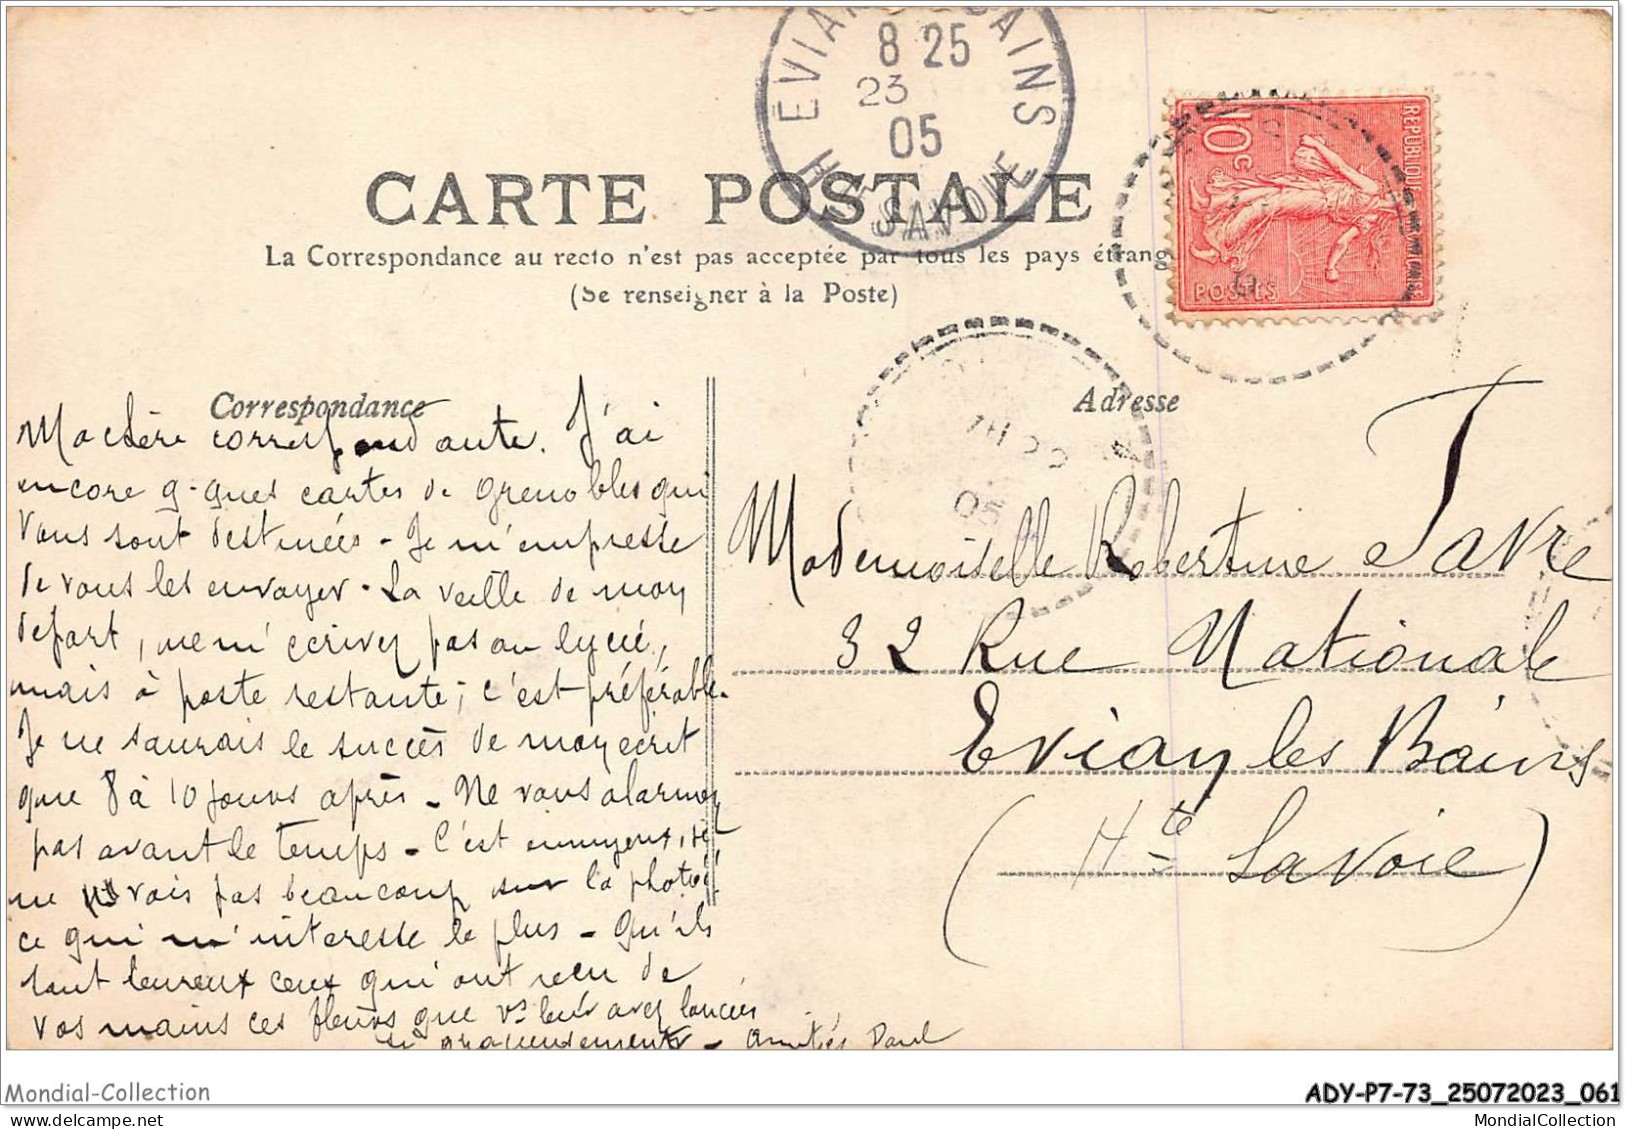 EVIAN LES BAINS
8 25
23
05
HTE SAVOIE
REPUBLIQUE FRANÇAISE
10c
POSTES
CARTE POSTALE
La Correspondance au recto n'est pas acceptée par tous les pays étrang
(Se renseigner à la Poste)
Correspondance
Adresse
Ma chère correspondante. J'ai
encore q-ques cartes de Grenobles qui
vous sont destinées - Je m'empresse
de vous les envoyer - La veille de mon
départ, ne m'écrivez pas au lycée,
mais à poste restante; c'est préférable.
Je ne saurais le succès de mon écrit
que 8 à 10 jours après - Ne vous alarmez
pas avant le temps - C'est ennuyeux, je
ne vois pas beaucoup sur la photo
ce qui m'intéresse le plus - Qu'ils
sont heureux ceux qui ont reçu de
vos mains ces fleurs que vs leur avez lancées
si gracieusement - Amitiés Paul
Mademoiselle Robertine Favre
32 Rue Nationale
Evian les Bains
(Hte Savoie)
05
Mondial-Collection
ADY-P7-73_25072023_061
MondialCollection